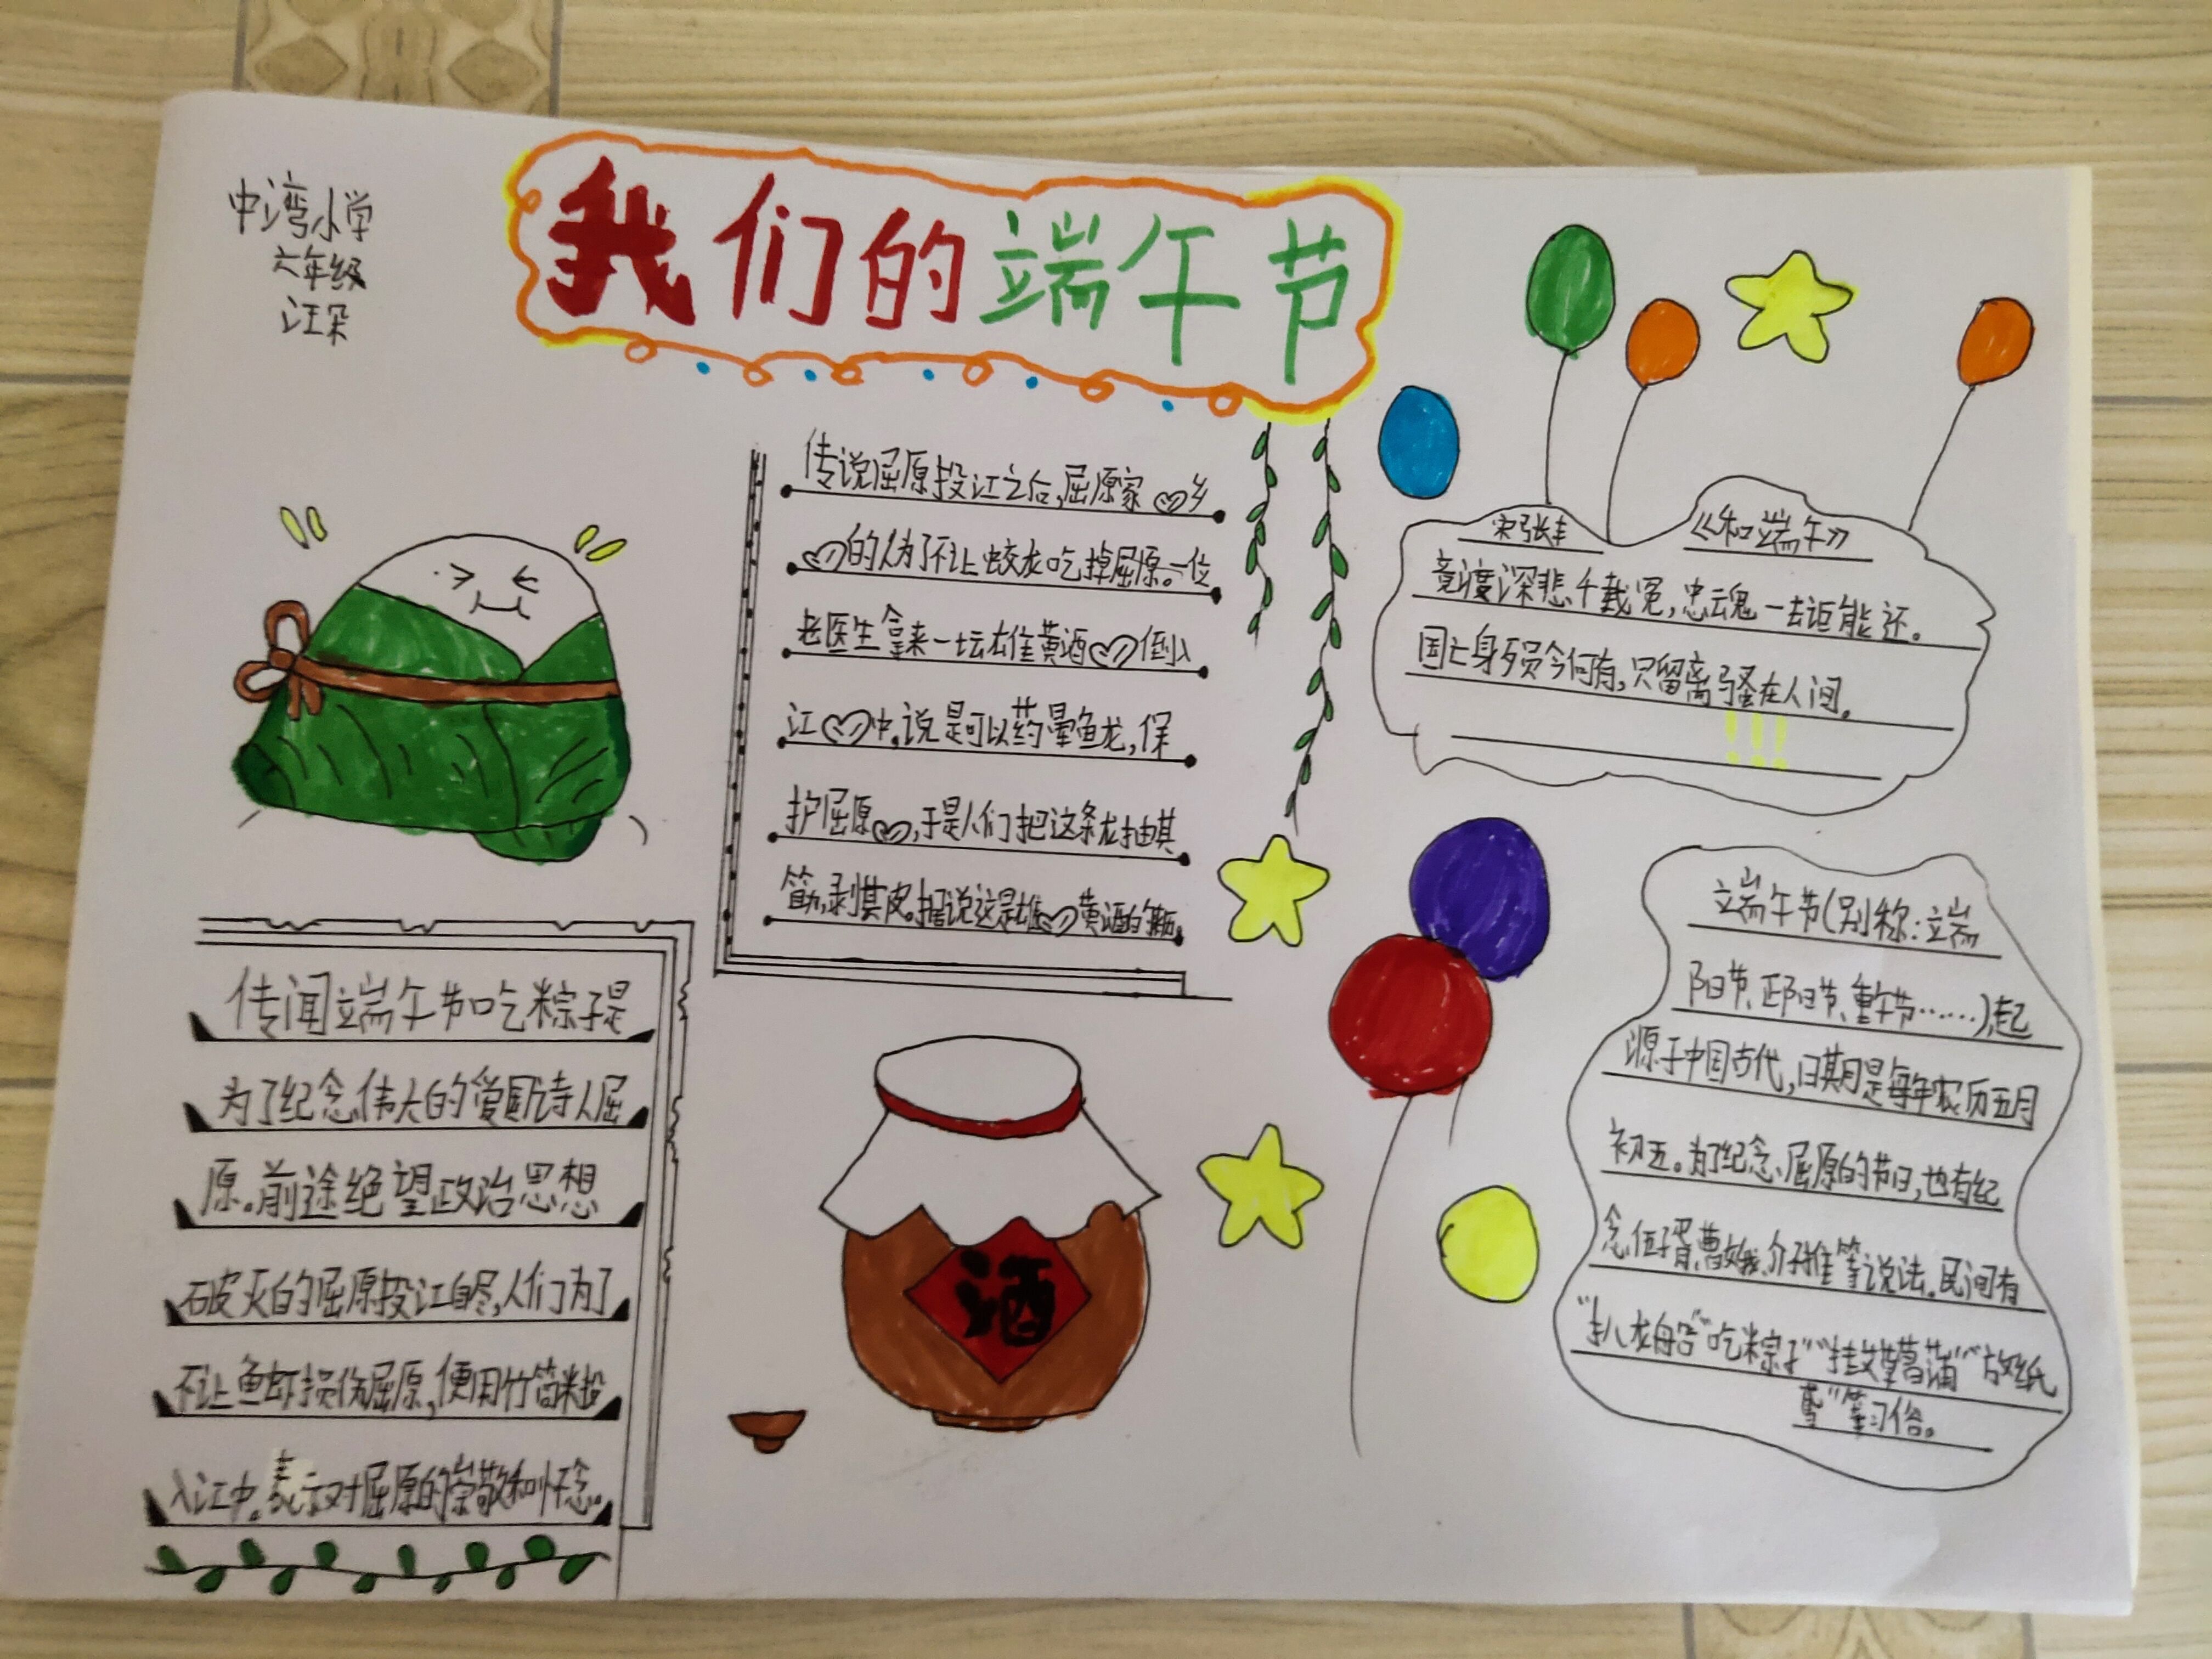 中湾小学
六年级
汪朵
我们的端午节
传说屈原投江之后,屈原家乡
的人为了不让蛟龙吃掉屈原。一位
老医生拿来一坛雄黄酒倒入
江中,说是可以药晕鱼龙,保
护屈原,于是人们把这条龙抽其
筋,剥其皮。据说这是雄黄酒的
传闻端午节吃粽子是
为了纪念伟大的爱国诗人屈
原。前途绝望政治思想
破灭的屈原投江自尽,人们为了
不让鱼虾损伤屈原,便用竹筒米投
入江中。表示对屈原的崇敬和怀念。
酒
宋张耒 《和端午》
竞渡深悲千载冤,忠魂一去讵能还。
国亡身殒今何有,只留离骚在人间。
!!!
端午节(别称:端
阳节、正阳节、重午节……),起
源于中国古代,日期是每年农历五月
初五。为了纪念屈原的节日,也有纪
念伍子胥、曹娥、介子推等说法。民间有
“扒龙船”“吃粽子”“挂艾草菖蒲”“放纸
鸢”等习俗。